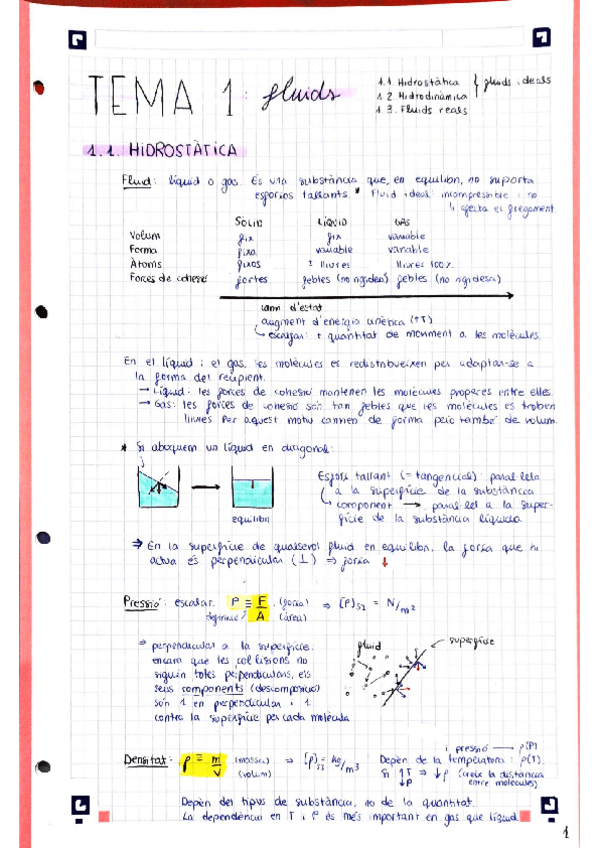 TEMA 1: fluids
1.1. Hidrostàtica } fluids ideals
1.2. Hidrodinàmica
1.3. Fluids reals
1.1. HIDROSTÀTICA
Fluid: líquid o gas. És una substància que, en equilibri, no suporta
esforços tallants. * Fluid ideal: incompressible i no
li afecta el fregament
SÒLID LÍQUID GAS
Volum fix fix variable
Forma fixa variable variable
Àtoms fixos ± lliures lliures 100%
Forces de cohesió fortes febles (no rigidesa) febles (no rigidesa)
canvi d'estat
augment d'energia cinètica (↑T)
escalfar: + quantitat de moviment a les molècules.
En el líquid i el gas, les molècules es redistribueixen per adaptar-se a
la forma del recipient.
→ Líquid: les forces de cohesió mantenen les molècules properes entre elles.
→ Gas: les forces de cohesió són tan febles que les molècules es troben
lliures. Per aquest motiu canvien de forma però també de volum.
* Si aboquem un líquid en diagonal:
equilibri
Esforç tallant (= tangencial): paral·lela
a la superfície de la substància
component → paral·lel a la super-
fície de la substància líquida.
⇒ En la superfície de qualsevol fluid en equilibri, la força que hi
actua és perpendicular (⊥) ⇒ força ↓
Pressió: escalar. P ≡ F/A (força) (àrea) ⇒ [P]SI = N/m²
definició
perpendicular a la superfície:
encara que les col·lisions no
siguin totes perpendiculars, els
seus components (descomposició)
són 1 en perpendicular i 1
contra la superfície per cada molècula
fluid
superfície
Densitat: ρ ≡ m/V (massa) (volum) ⇒ [ρ]SI = kg/m³
i pressió → ρ(P)
Depèn de la temperatura: ρ(T).
Si ↑T ⇒ ↓ρ (creix la distància
↓P entre molècules)
Depèn del tipus de substància, no de la quantitat.
La dependència en T i P és més important en gas que líquid.
1